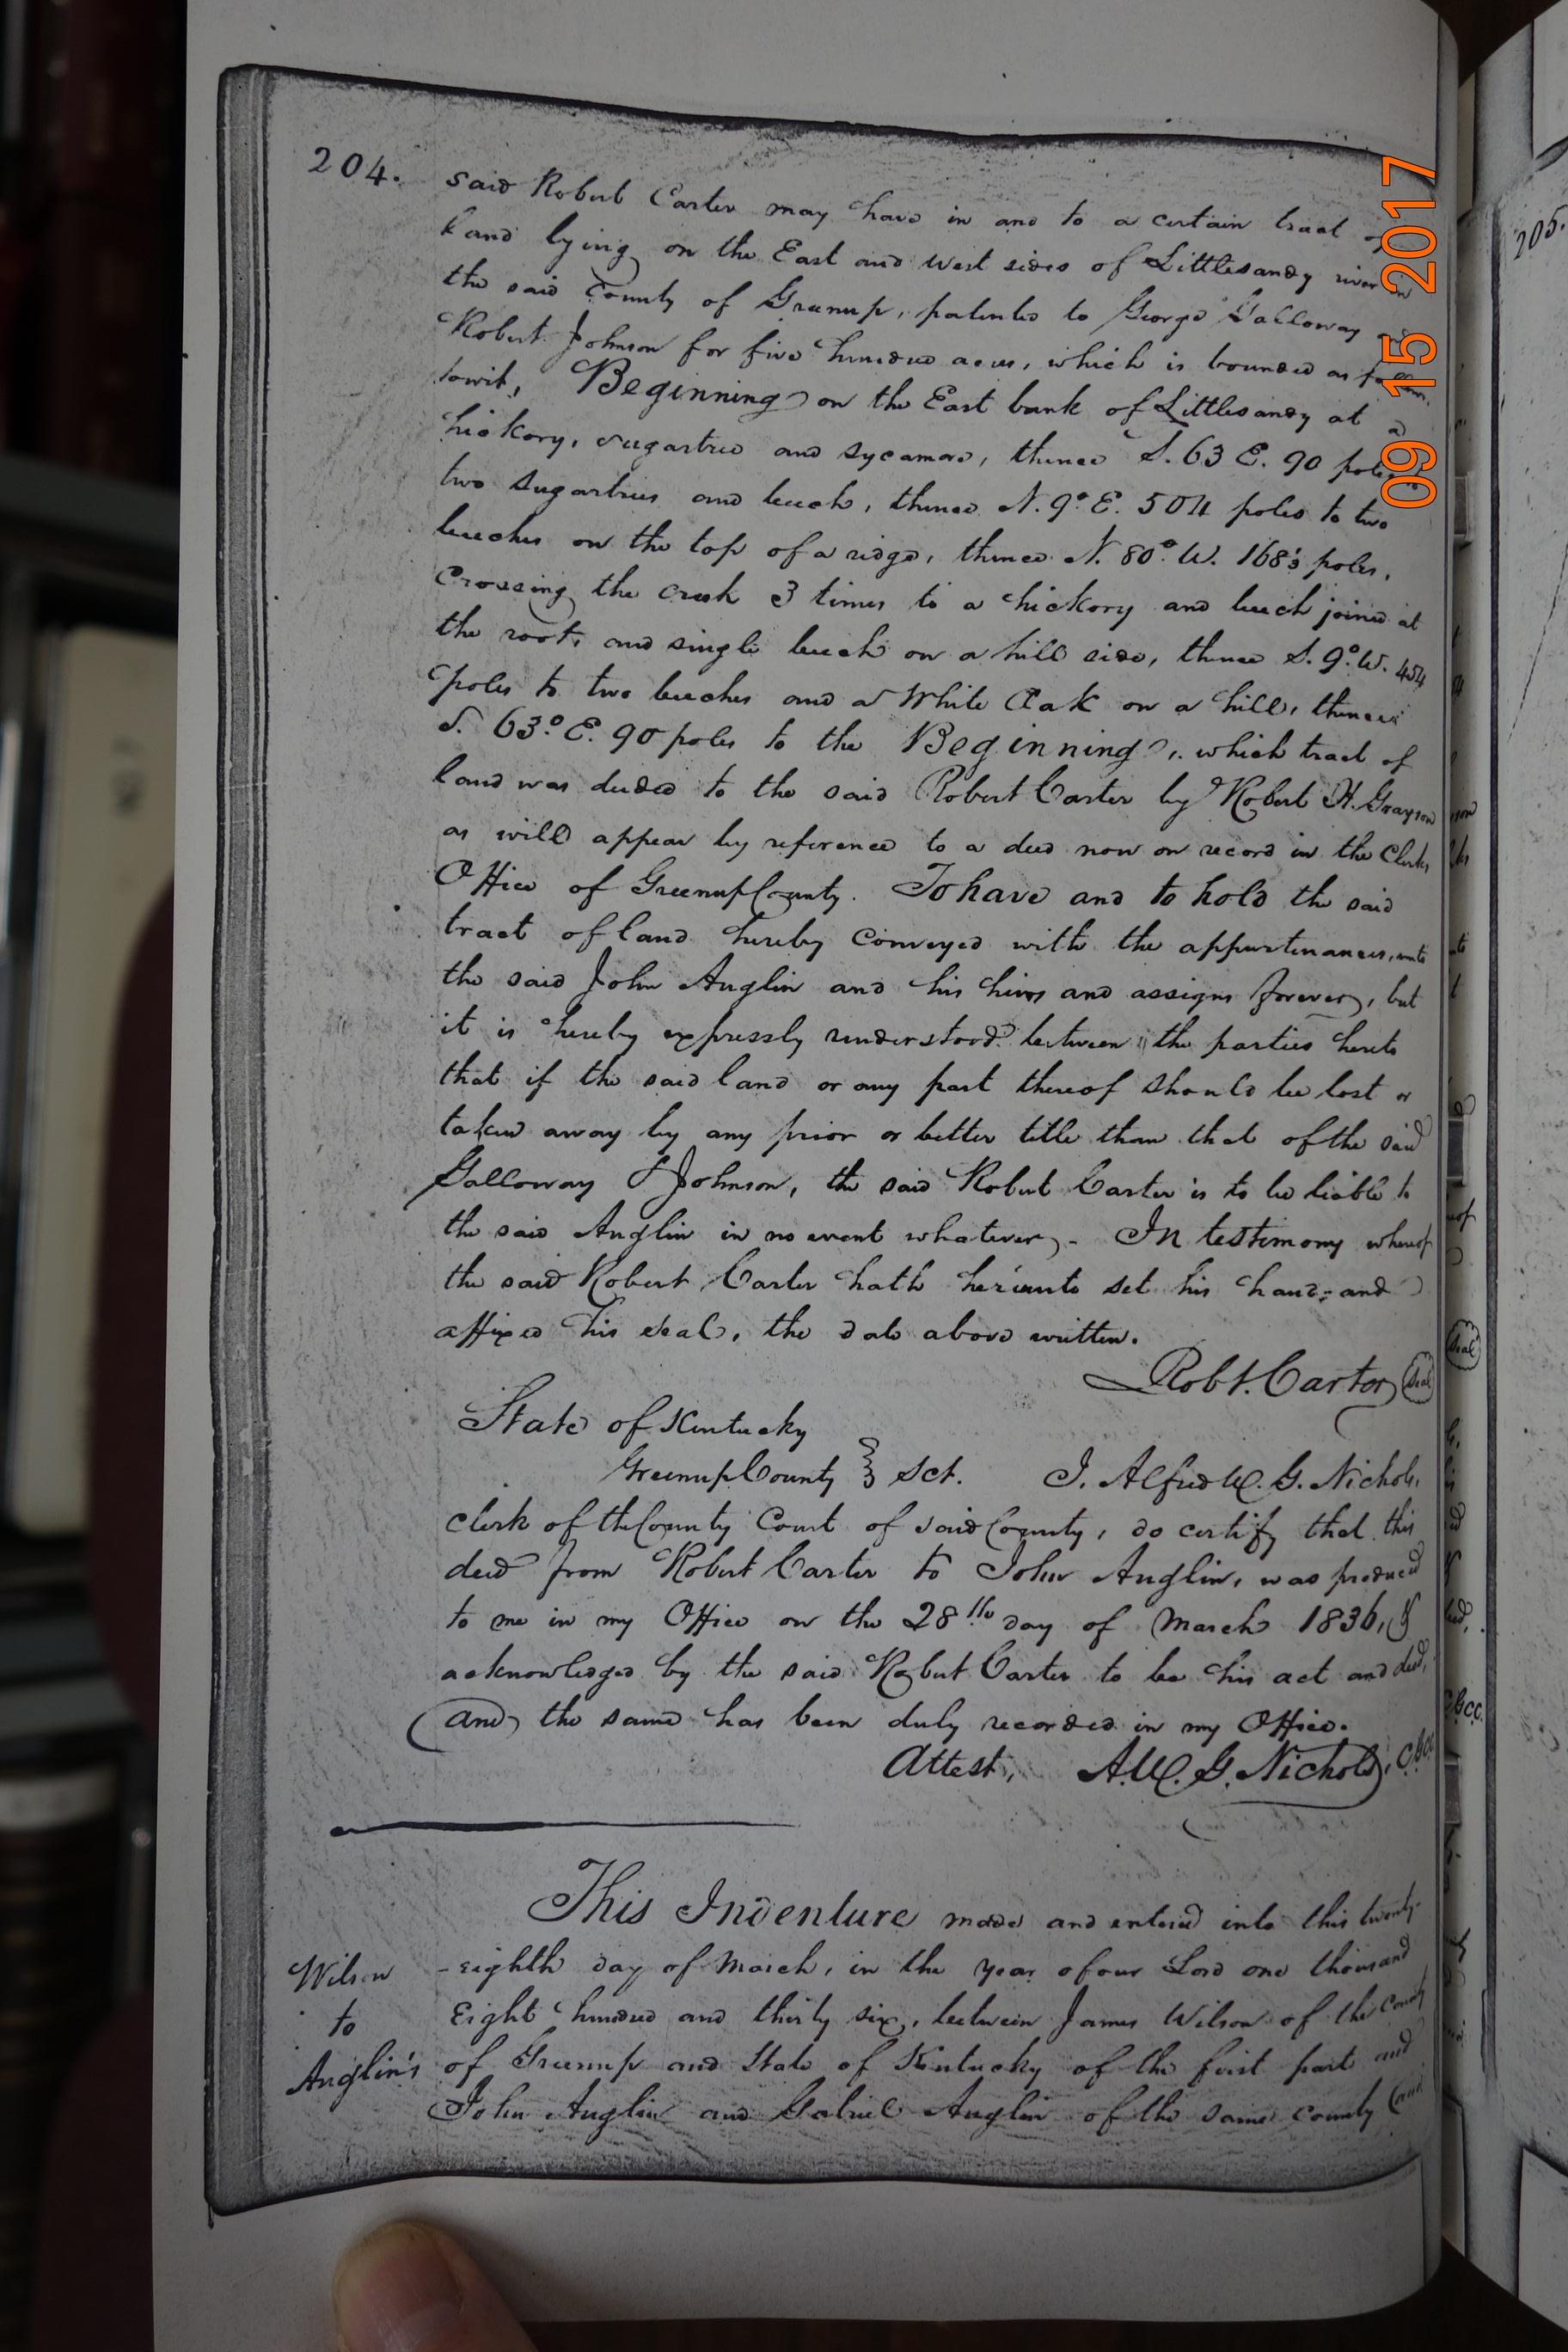 204.
said Robert Carter may have in and to a certain tract of
Land lying on the East and West sides of Littlesandy river in
the said County of Greenup, patented to George Galloway
Robert Johnson for five hundred acres, which is bounded as follows
towit, Beginning on the East bank of Littlesandy at a
hickory, sugartree and sycamore, thence S. 63 E. 90 poles
two sugartrees and beech, thence N. 9° E. 504 poles to two
beeches on the top of a ridge, thence N. 80° W. 168 poles,
Crossing the creek 3 times to a hickory and beech joined at
the root, and single beech on a hill side, thence S. 9° W. 454
poles to two beeches and a White Oak on a hill, thence
S. 63° E. 90 poles to the Beginning, which tract of
land was deeded to the said Robert Carter by Robert H. Grayson
as will appear by reference to a deed now on record in the Clerks
Office of Greenup County. To have and to hold the said
tract of land hereby conveyed with the appurtenances, unto
the said John Anglin and his heirs and assigns forever, but
it is hereby expressly understood between the parties hereto
that if the said land or any part thereof should be lost or
taken away by any prior or better title than that of the said
Galloway & Johnson, the said Robert Carter is to be liable to
the said Anglin in no event whatever. In testimony whereof
the said Robert Carter hath hereunto set his hand and
affixed his seal, the date above written.
Robt. Carter Seal
State of Kentucky
Greenup County } Sct. I, Alfred W. G. Nichols,
clerk of the County Court of said County, do certify that this
deed from Robert Carter to John Anglin, was produced
to me in my Office on the 28th day of March 1836, &
acknowledged by the said Robert Carter to be his act and deed,
and the same has been duly recorded in my Office.
Attest, A. W. G. Nichols, C.G.C.C.
This Indenture made and entered into this twenty
-eighth day of March, in the year of our Lord one thousand
Eight hundred and thirty six, between James Wilson of the County
of Greenup and State of Kentucky of the first part and
John Anglin and Gabriel Anglin of the same county and
Wilson
to
Anglin's
09 15 2017
205.